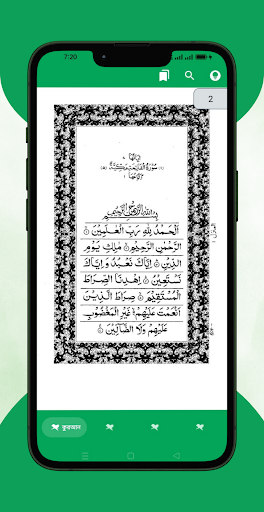 7:20
2
سُوْرَةُ الْفَاتِحَةِ مَكِّيَّةٌ
بِسْمِ اللّٰهِ الرَّحْمٰنِ الرَّحِيْمِ
اَلْحَمْدُ لِلّٰهِ رَبِّ الْعٰلَمِيْنَ ۝
الرَّحْمٰنِ الرَّحِيْمِ ۝ مٰلِكِ يَوْمِ
الدِّيْنِ ۝ اِيَّاكَ نَعْبُدُ وَ اِيَّاكَ
نَسْتَعِيْنُ ۝ اِهْدِنَا الصِّرَاطَ
الْمُسْتَقِيْمَ ۝ صِرَاطَ الَّذِيْنَ
اَنْعَمْتَ عَلَيْهِمْ ۝ غَيْرِ الْمَغْضُوْبِ
عَلَيْهِمْ وَلَا الضَّآلِّيْنَ ۝
কুরআন